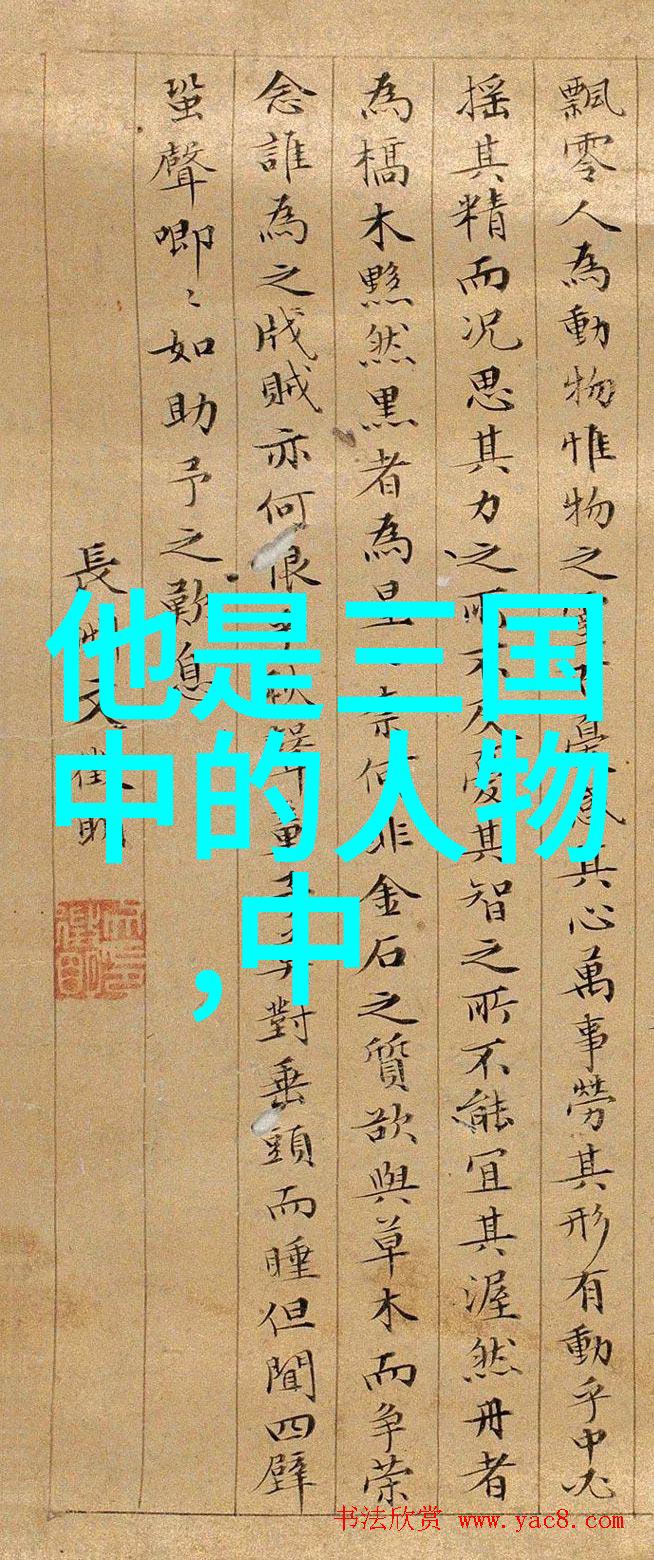 飄零人為動物惟物之憂感其心萬事勞其形有動乎中必
搖其精而況思其力之所不及憂其智之所不能宜其渥然丹者
為槁木黟然黒者為星奈何非金石之質欲與草木而争荣
念誰為之戕賊亦何恨秋聲童對垂頭而睡但聞四壁
蛩聲唧〻如助予之歎息
長洲文徵明
他是三国
中的人物
,中
书法欣赏 www.yac8.com